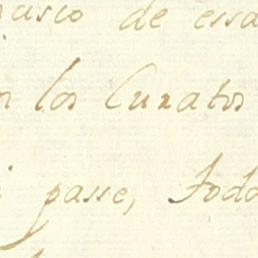 de essa
los Curatos
passe, Todo